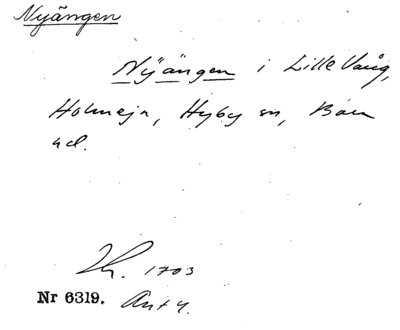 Nyängen
Nÿängen i Lille Vång,
Holmeja, Hyby sn, Bara
hd.
Lh. 1703
Nr 6319. Ant 4.